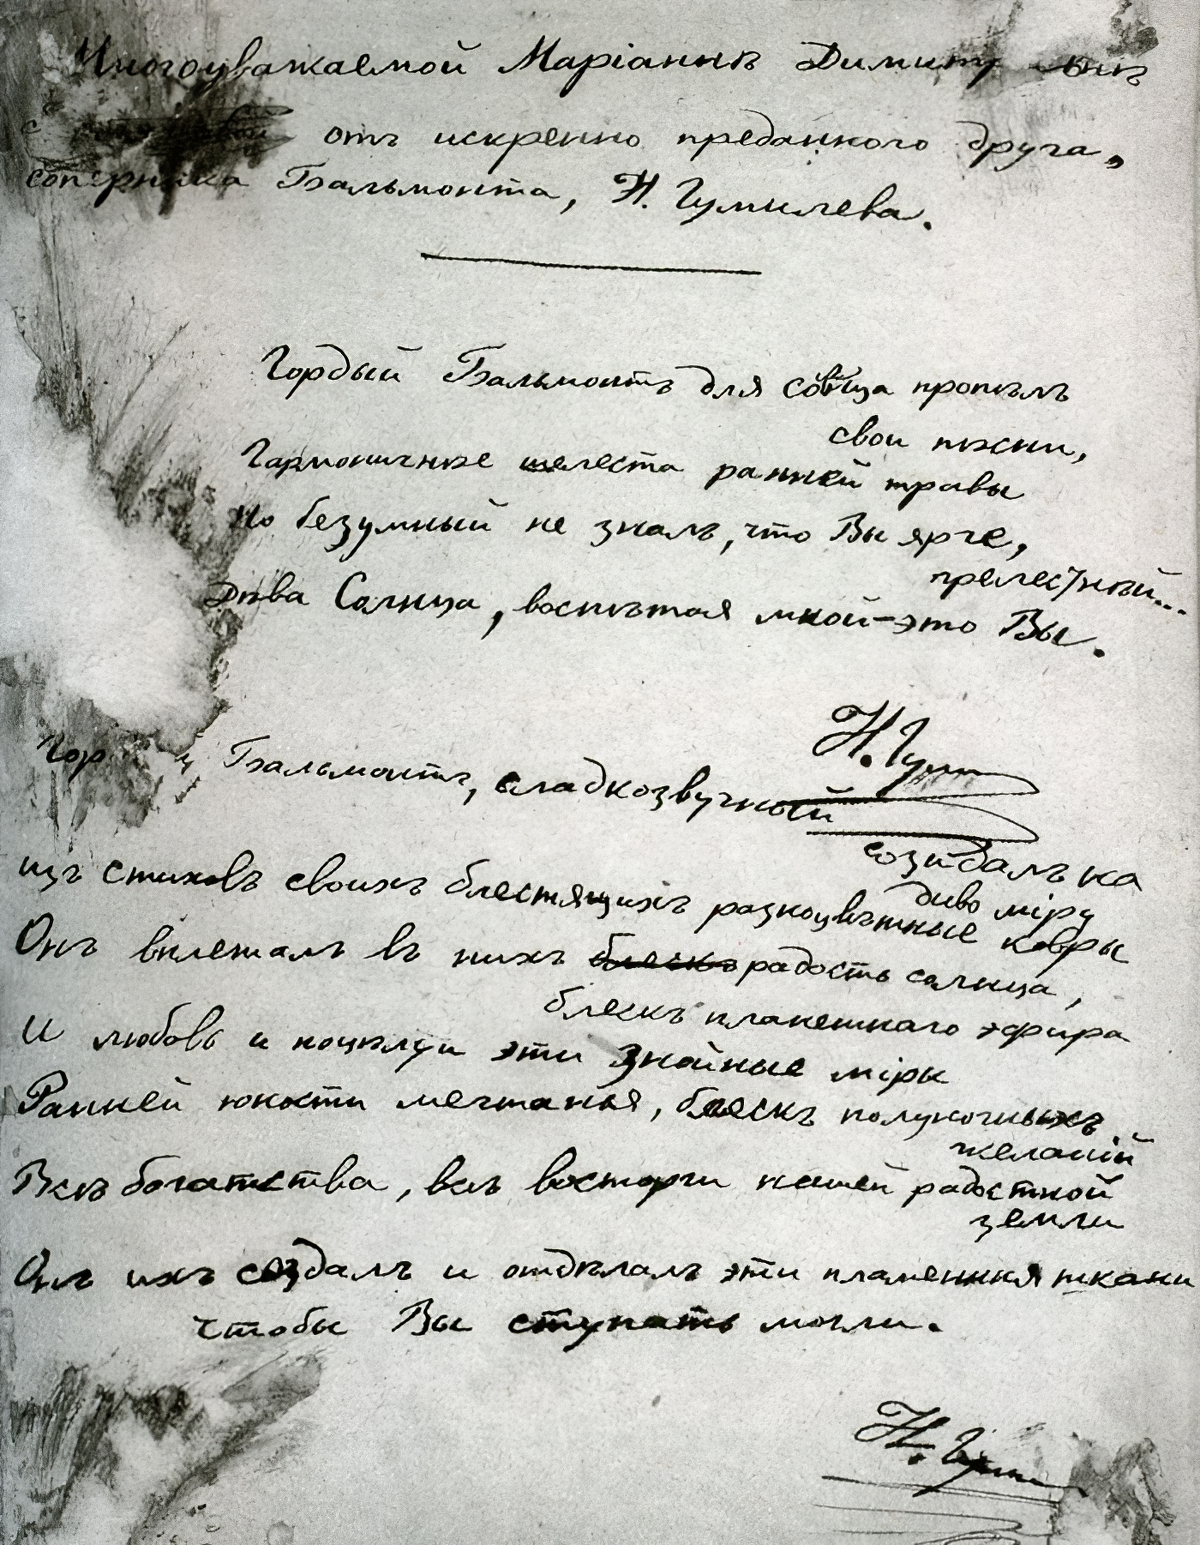 Многоуважаемой Маріаннѣ
отъ искренно преданного друга,
соперника Бальмонта, Н. Гумилева.
Гордый Бальмонтъ для солнца пропѣлъ
свои пѣсни,
Гармоничнѣе шелеста ранней травы
Но безумный не зналъ, что Вы ярче,
прелестнѣй...
Дѣва Солнца, воспѣтая мной-это Вы.
Н. Гум
Бальмонтъ, сладкозвучный
созидалъ на
диво міру
изъ стиховъ своихъ блестящихъ разноцвѣтные ковры
Онъ вплеталъ въ нихъ блескъ радость солнца,
блескъ планетнаго эфира
И любовь и поцѣлуи эти знойные міры
Ранней юности мечтанья, блескъ полуночныхъ
желаній
Всѣ богатства, всѣ восторги нашей радостной
земли
Онъ ихъ создалъ и отдѣлалъ эти пламенныя ткани
Чтобы Вы ступать могли.
Н. Гум